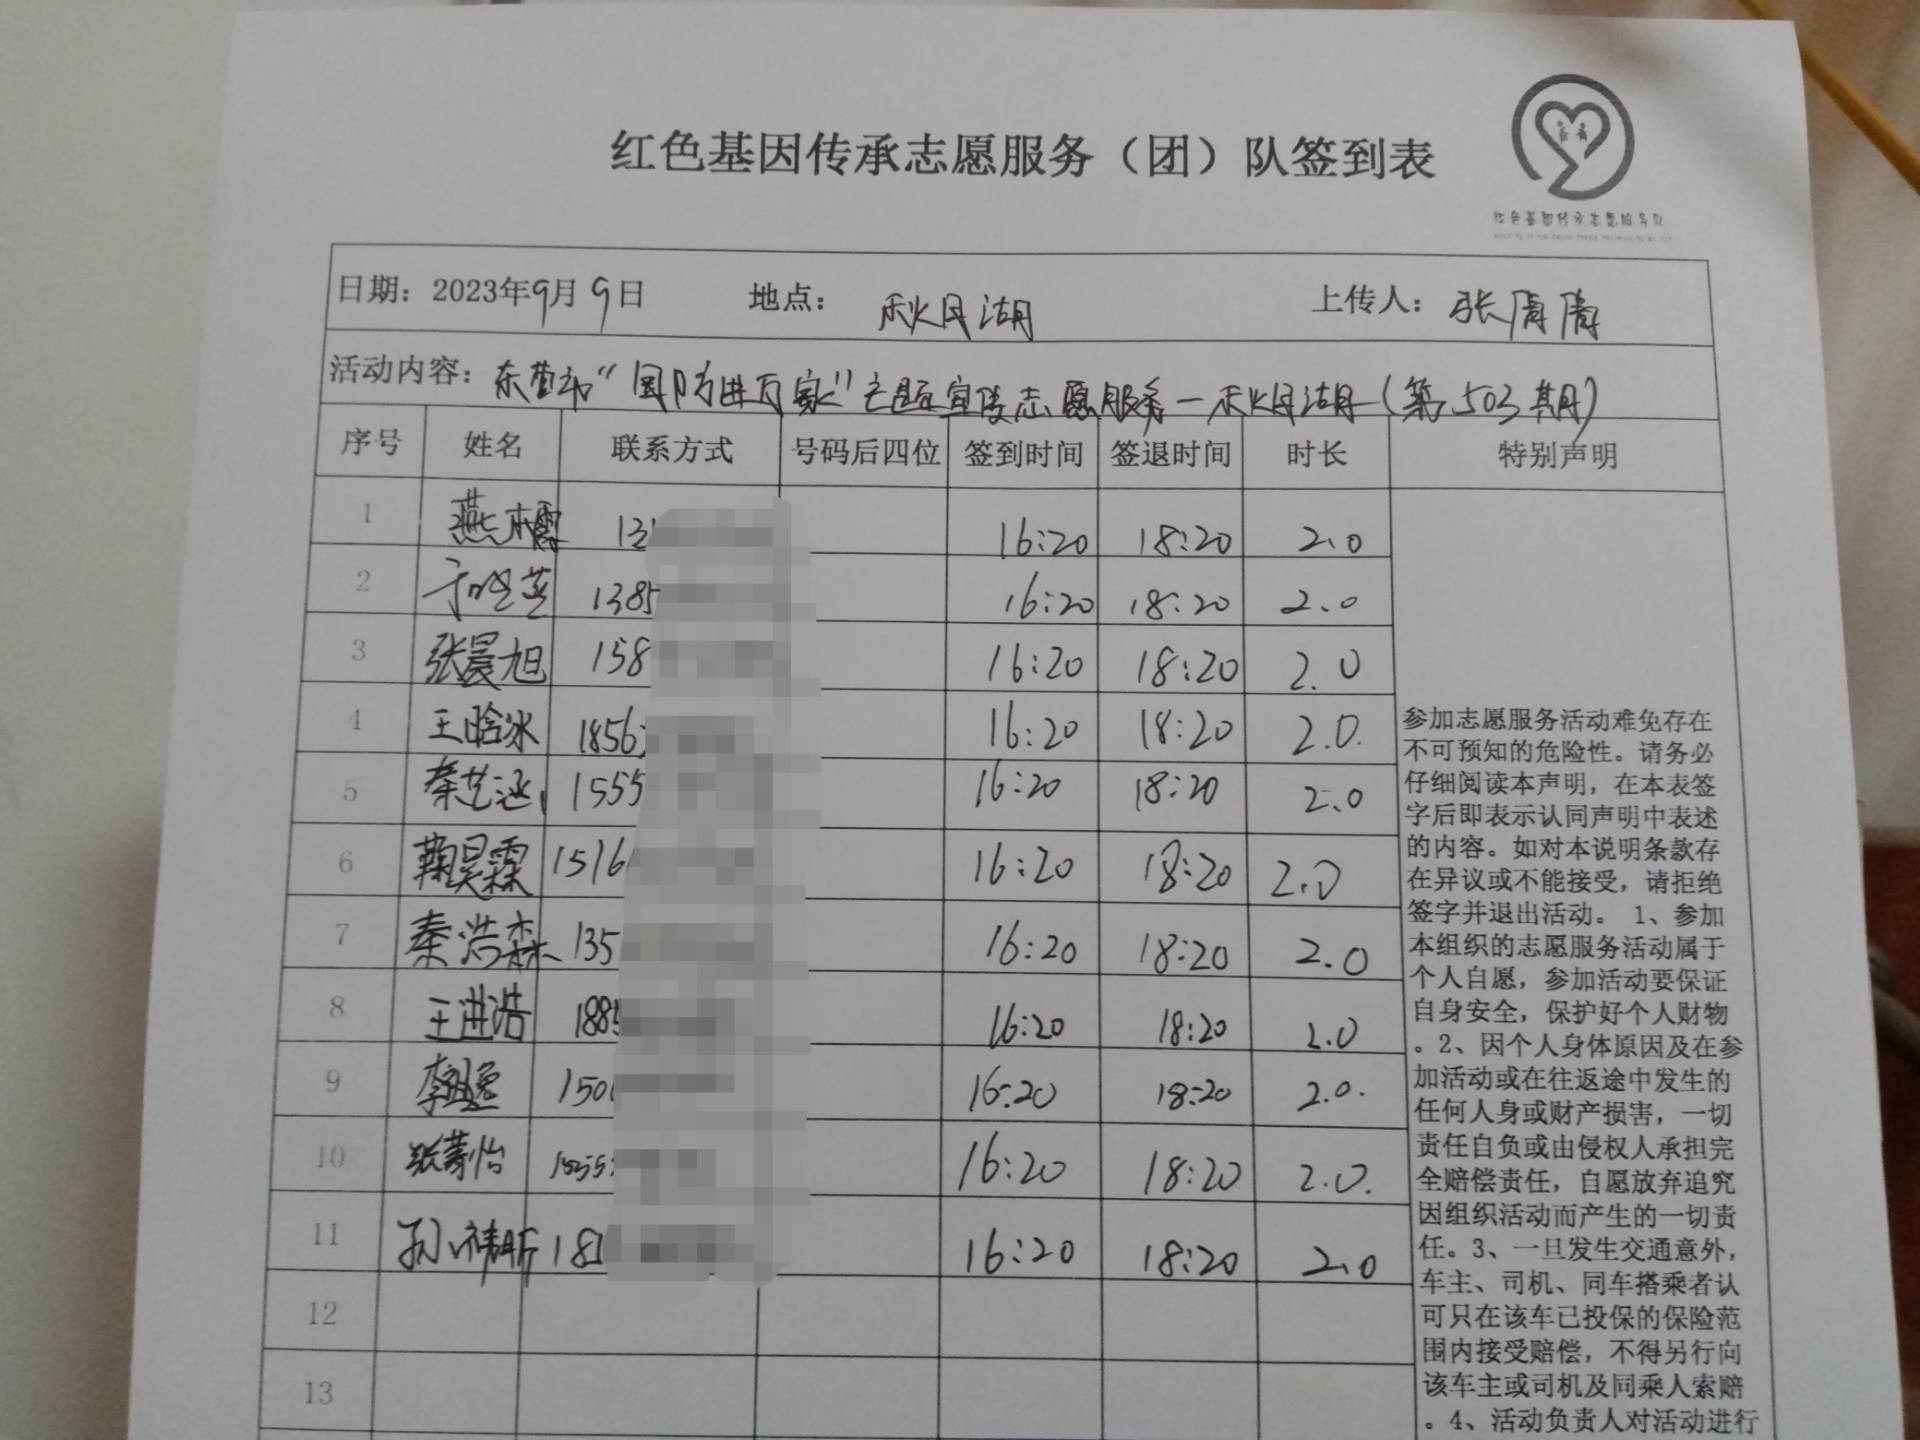 红色基因传承志愿服务（团）队签到表
红色基因传承志愿服务队
日期：2023年9月9日 地点：秋月湖 上传人：张倩倩
活动内容：东营市“国防进万家”主题宣传志愿服务—秋月湖（第503期）
序号 姓名 联系方式 号码后四位 签到时间 签退时间 时长 特别声明
1 燕 13 16:20 18:20 2.0
2 于 1385 16:20 18:20 2.0
3 张晨旭 158 16:20 18:20 2.0
4 王晗冰 1856 16:20 18:20 2.0
5 秦艺涵 1555 16:20 18:20 2.0
6 鞠昊霖 1516 16:20 18:20 2.0
7 秦浩森 135 16:20 18:20 2.0
8 王进浩 1885 16:20 18:20 2.0
9 李 150 16:20 18:20 2.0
10 张 怡 16:20 18:20 2.0
11 孙祎昕 18 16:20 18:20 2.0
12
13
参加志愿服务活动难免存在
不可预知的危险性。请务必
仔细阅读本声明，在本表签
字后即表示认同声明中表述
的内容。如对本说明条款存
在异议或不能接受，请拒绝
签字并退出活动。 1、参加
本组织的志愿服务活动属于
个人自愿，参加活动要保证
自身安全，保护好个人财物
。2、因个人身体原因及在参
加活动或在往返途中发生的
任何人身或财产损害，一切
责任自负或由侵权人承担完
全赔偿责任，自愿放弃追究
因组织活动而产生的一切责
任。3、一旦发生交通意外，
车主、司机、同车搭乘者认
可只在该车已投保的保险范
围内接受赔偿，不得另行向
该车主或司机及同乘人索赔
。4、活动负责人对活动进行